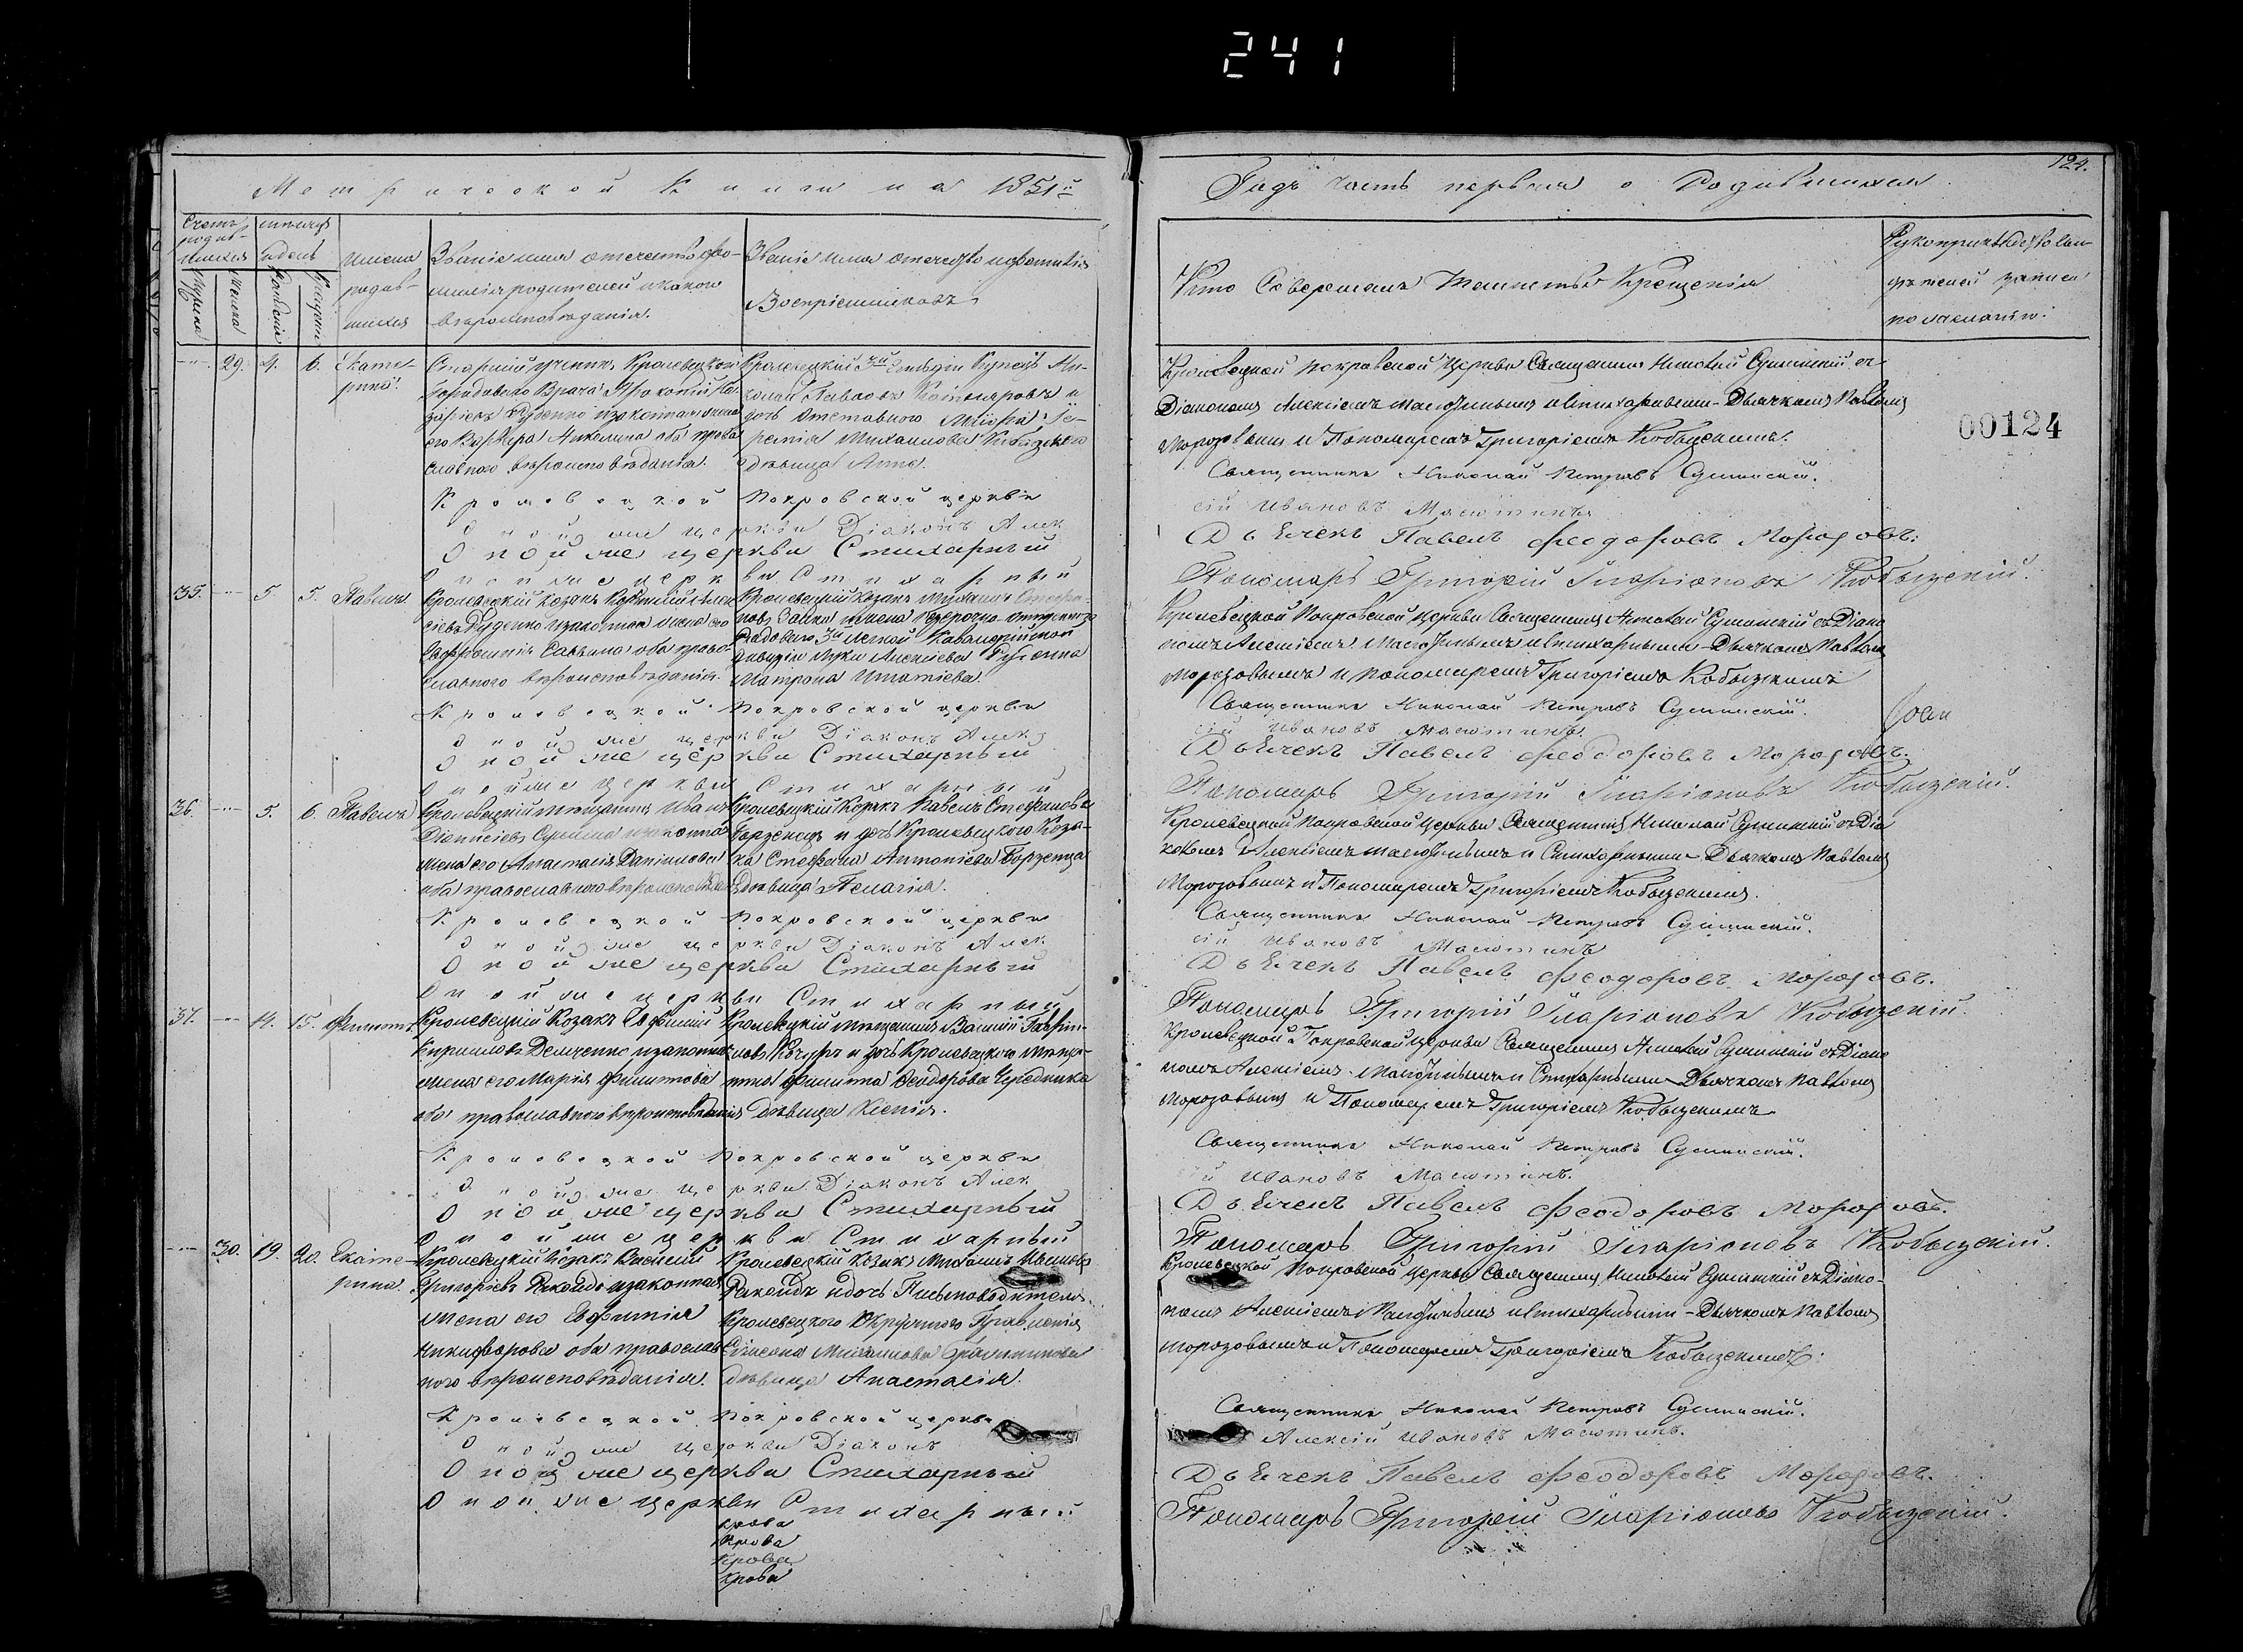 241
Метрической Книги на 1851й
Годъ часть первая о Родившихся.
124.
Счетъ родив-
шихся
Мужеска
Женска
мѣсяцъ
и день
Рожденія
Крещенія
Имена
родив-
шихся
Званіе имя отечество фа-
милія родителей и какого
вѣроисповѣданія.
Званіе имя отечество и фамилія
Воспріемниковъ
Кто Совершалъ Таинство Крещенія
Рукоприкладство сви-
дѣтелей записи
по желанію.
29. 4. 6. Екате-
рина.
Старшій ученикъ Кролевецкого
Городового Врача Прокопій
Руденко и законная жена
его Акилина оба право
славного вѣроисповѣданія.
Кролевецкій 3й Гильдіи Купецъ Ни-
колай Павловъ и
дочь отставного
Михаилова
дѣвица Анна.
Кролевецкой Покровской Церкви Священникъ Николай Сулимскій съ
Діакономъ Алексіемъ Масютинымъ и стихарнымъ Дьячкомъ Павломъ
Морозовымъ и Пономаремъ Григоріемъ Кобызскимъ.
00124
Кролевецкой Покровской церкви Священникъ Николай Петровъ Сулимскій.
Оной же церкви Діаконъ Алексій Ивановъ Масютинъ
Оной же церкви Стихарный Дьячекъ Павелъ Феодоровъ Морозовъ.
Оной же церкви Стихарный Пономарь Григорій Иларіоновъ Кобызскій.
35. 5. 5. Павелъ
Кролевецкій козакъ Алек
сіевъ Руденко и законная жена его
Саввина оба право-
славного вѣроисповѣданія.
Кролевецкій козакъ Михаилъ
Заика и жена безсрочно-отпускного
рядового 3й легкой Кавалерійской
дивизіи Луки Алексіева Руденка
Матрона Игнатіева
Кролевецкой Покровской Церкви Священникъ Николай Сулимскій съ Діако
номъ Алексіемъ Масютинымъ и стихарнымъ Дьячкомъ Павломъ
Морозовымъ и пономаремъ Григоріемъ Кобызскимъ
Кролевецкой Покровской церкви Священникъ Николай Петровъ Сулимскій.
Оной же церкви Діаконъ Алексій Ивановъ Масютинъ
Оной же церкви Стихарный Дьячекъ Павелъ Феодоровъ Морозовъ.
Оной же церкви Стихарный Пономарь Григорій Иларіоновъ Кобызскій.
36. 5. 6. Павелъ
Кролевецкій мѣщанинъ Иванъ
Діонисіевъ и законная
жена его Анастасія Даніилова
оба православного вѣроисповѣданія
Кролевецкій Козакъ Павелъ Стефановъ
Борзенецъ и дочь Кролевецкого Коза-
ка Стефана Антоніева Борзенца
дѣвица Пелагія.
Кролевецкой Покровской Церкви Священникъ Николай Сулимскій съ Діа
кономъ Алексіемъ Масютинымъ и Стихарнымъ Дьячкомъ Павломъ
Морозовымъ и Пономаремъ Григоріемъ Кобызскимъ.
Кролевецкой Покровской церкви Священникъ Николай Петровъ Сулимскій.
Оной же церкви Діаконъ Алексій Ивановъ Масютинъ
Оной же церкви Стихарный Дьячекъ Павелъ Феодоровъ Морозовъ.
Оной же церкви Стихарный Пономарь Григорій Иларіоновъ Кобызскій.
37. 14. 15. Филиппъ
Кролевецкій Козакъ Евфимій
Кирилловъ Демченко и законная
жена его Марія Филиппова
оба православного вѣроисповѣданія
Кролевецкій мѣщанинъ Василій Гаврии-
ловъ и дочь Кролевецкого мѣща-
нина Филиппа Феодорова Чередника
дѣвица Ксенія.
Кролевецкой Покровской Церкви Священникъ Николай Сулимскій съ Діако
номъ Алексіемъ Масютинымъ и Стихарнымъ Дьячкомъ Павломъ
Морозовымъ и Пономаремъ Григоріемъ Кобызскимъ
Кролевецкой Покровской церкви Священникъ Николай Петровъ Сулимскій.
Оной же церкви Діаконъ Алексій Ивановъ Масютинъ.
Оной же церкви Стихарный Дьячекъ Павелъ Феодоровъ Морозовъ.
Оной же церкви Стихарный Пономарь Григорій Иларіоновъ Кобызскій.
30. 19. 20. Екате-
рина.
Кролевецкій Козакъ Василій
Григоріевъ и законная
жена его Евфимія
Никифорова оба православ
ного вѣроисповѣданія.
Кролевецкій козакъ Михаилъ
и дочь Письмоводителя
Кролевецкого Окружного Правленія
Михаилова
дѣвица Анастасія.
Кролевецкой Покровской Церкви Священникъ Николай Сулимскій съ Діако-
номъ Алексіемъ Масютинымъ и стихарнымъ Дьячкомъ Павломъ
Морозовымъ и Пономаремъ Григоріемъ Кобызскимъ.
Кролевецкой Покровской церкви Священникъ Николай Петровъ Сулимскій.
Оной же церкви Діаконъ Алексій Ивановъ Масютинъ.
Оной же церкви Стихарный Дьячекъ Павелъ Феодоровъ Морозовъ.
Оной же церкви Стихарный Пономарь Григорій Иларіоновъ Кобызскій.
крова
крова
крова
крова